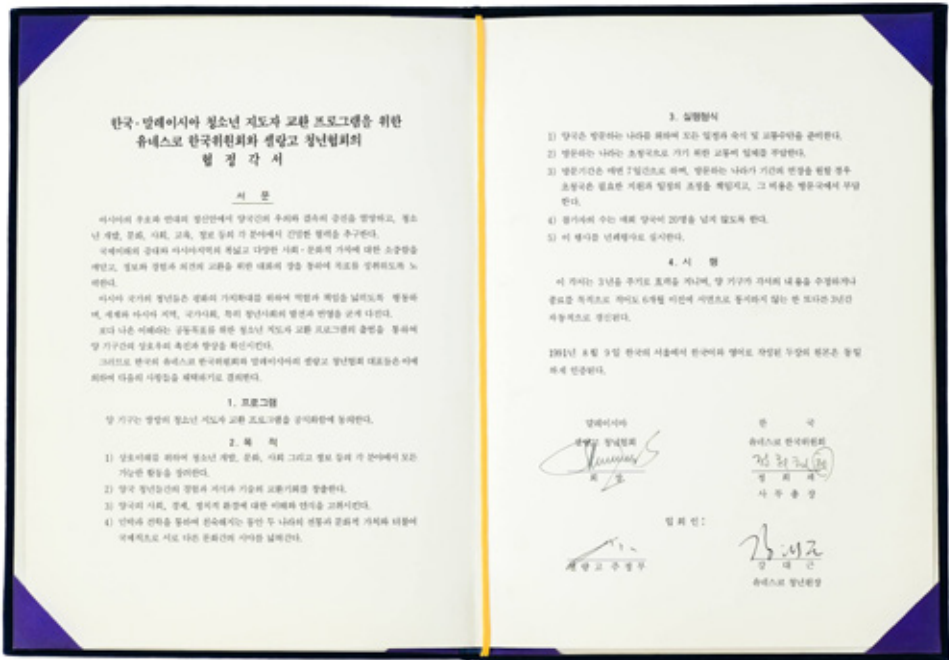 한국·말레이시아 청소년 지도자 교환 프로그램을 위한
유네스코 한국위원회와 셀랑고 청년협회의
협 정 각 서
서 문
아시아의 우호와 연대의 정신안에서 양국간의 우의와 결속의 증진을 열망하고, 청소
년 개발, 문화, 사회, 교육, 정보 등의 각 분야에서 긴밀한 협력을 추구한다.
국제이해의 증대와 아시아지역의 폭넓고 다양한 사회·문화적 가치에 대한 소중함을
깨닫고, 정보와 경험과 의견의 교환을 위한 대화의 장을 통하여 목표를 성취하도록 노
력한다.
아시아 국가의 청년들은 평화의 가치확대를 위하여 역할과 책임을 넓히도록 행동하
며, 세계와 아시아 지역, 국가사회, 특히 청년사회의 발전과 번영을 굳게 다진다.
보다 나은 이해라는 공동목표를 위한 청소년 지도자 교환 프로그램의 출범을 통하여
양 기구간의 상호우의 촉진과 향상을 확신시킨다.
그러므로 한국의 유네스코 한국위원회와 말레이시아의 셀랑고 청년협회 대표들은 이에
의하여 다음의 사항들을 채택하기로 결의한다.
1. 프로그램
양 기구는 쌍방의 청소년 지도자 교환 프로그램을 공식화함에 동의한다.
2. 목 적
1) 상호이해를 위하여 청소년 개발, 문화, 사회 그리고 정보 등의 각 분야에서 모든
가능한 활동을 장려한다.
2) 양국 청년들간의 경험과 지식과 기술의 교환기회를 창출한다.
3) 양국의 사회, 경제, 정치적 환경에 대한 이해와 인식을 고취시킨다.
4) 민박과 견학을 통하여 친숙해지는 동안 두 나라의 전통과 문화적 가치와 더불어
국제적으로 서로 다른 문화간의 시야를 넓혀간다.
3. 실행형식
1) 양국은 방문하는 나라를 위하여 모든 일정과 숙식 및 교통수단을 준비한다.
2) 방문하는 나라는 초청국으로 가기 위한 교통비 일체를 부담한다.
3) 방문기간은 매번 7일간으로 하며, 방문하는 나라가 기간의 연장을 원할 경우
초청국은 필요한 지원과 일정의 조정을 책임지고, 그 비용은 방문국에서 부담
한다.
4) 참가자의 수는 매회 양국이 20명을 넘지 않도록 한다.
5) 이 행사를 년례행사로 실시한다.
4. 시 행
이 각서는 3년을 주기로 효력을 지니며, 양 기구가 각서의 내용을 수정하거나
종료를 목적으로 적어도 6개월 이전에 서면으로 통지하지 않는 한 또다른 3년간
자동적으로 갱신된다.
1991년 8월 9일 한국의 서울에서 한국어와 영어로 작성된 두장의 원본은 동일
하게 인증된다.
말레이시아
셀랑고 청년협회
회 장
한 국
유네스코 한국위원회
정 희 채
사 무 총 장
입 회 인 :
셀 랑 고 주 정 부
강 대 근
유네스코 청년원장